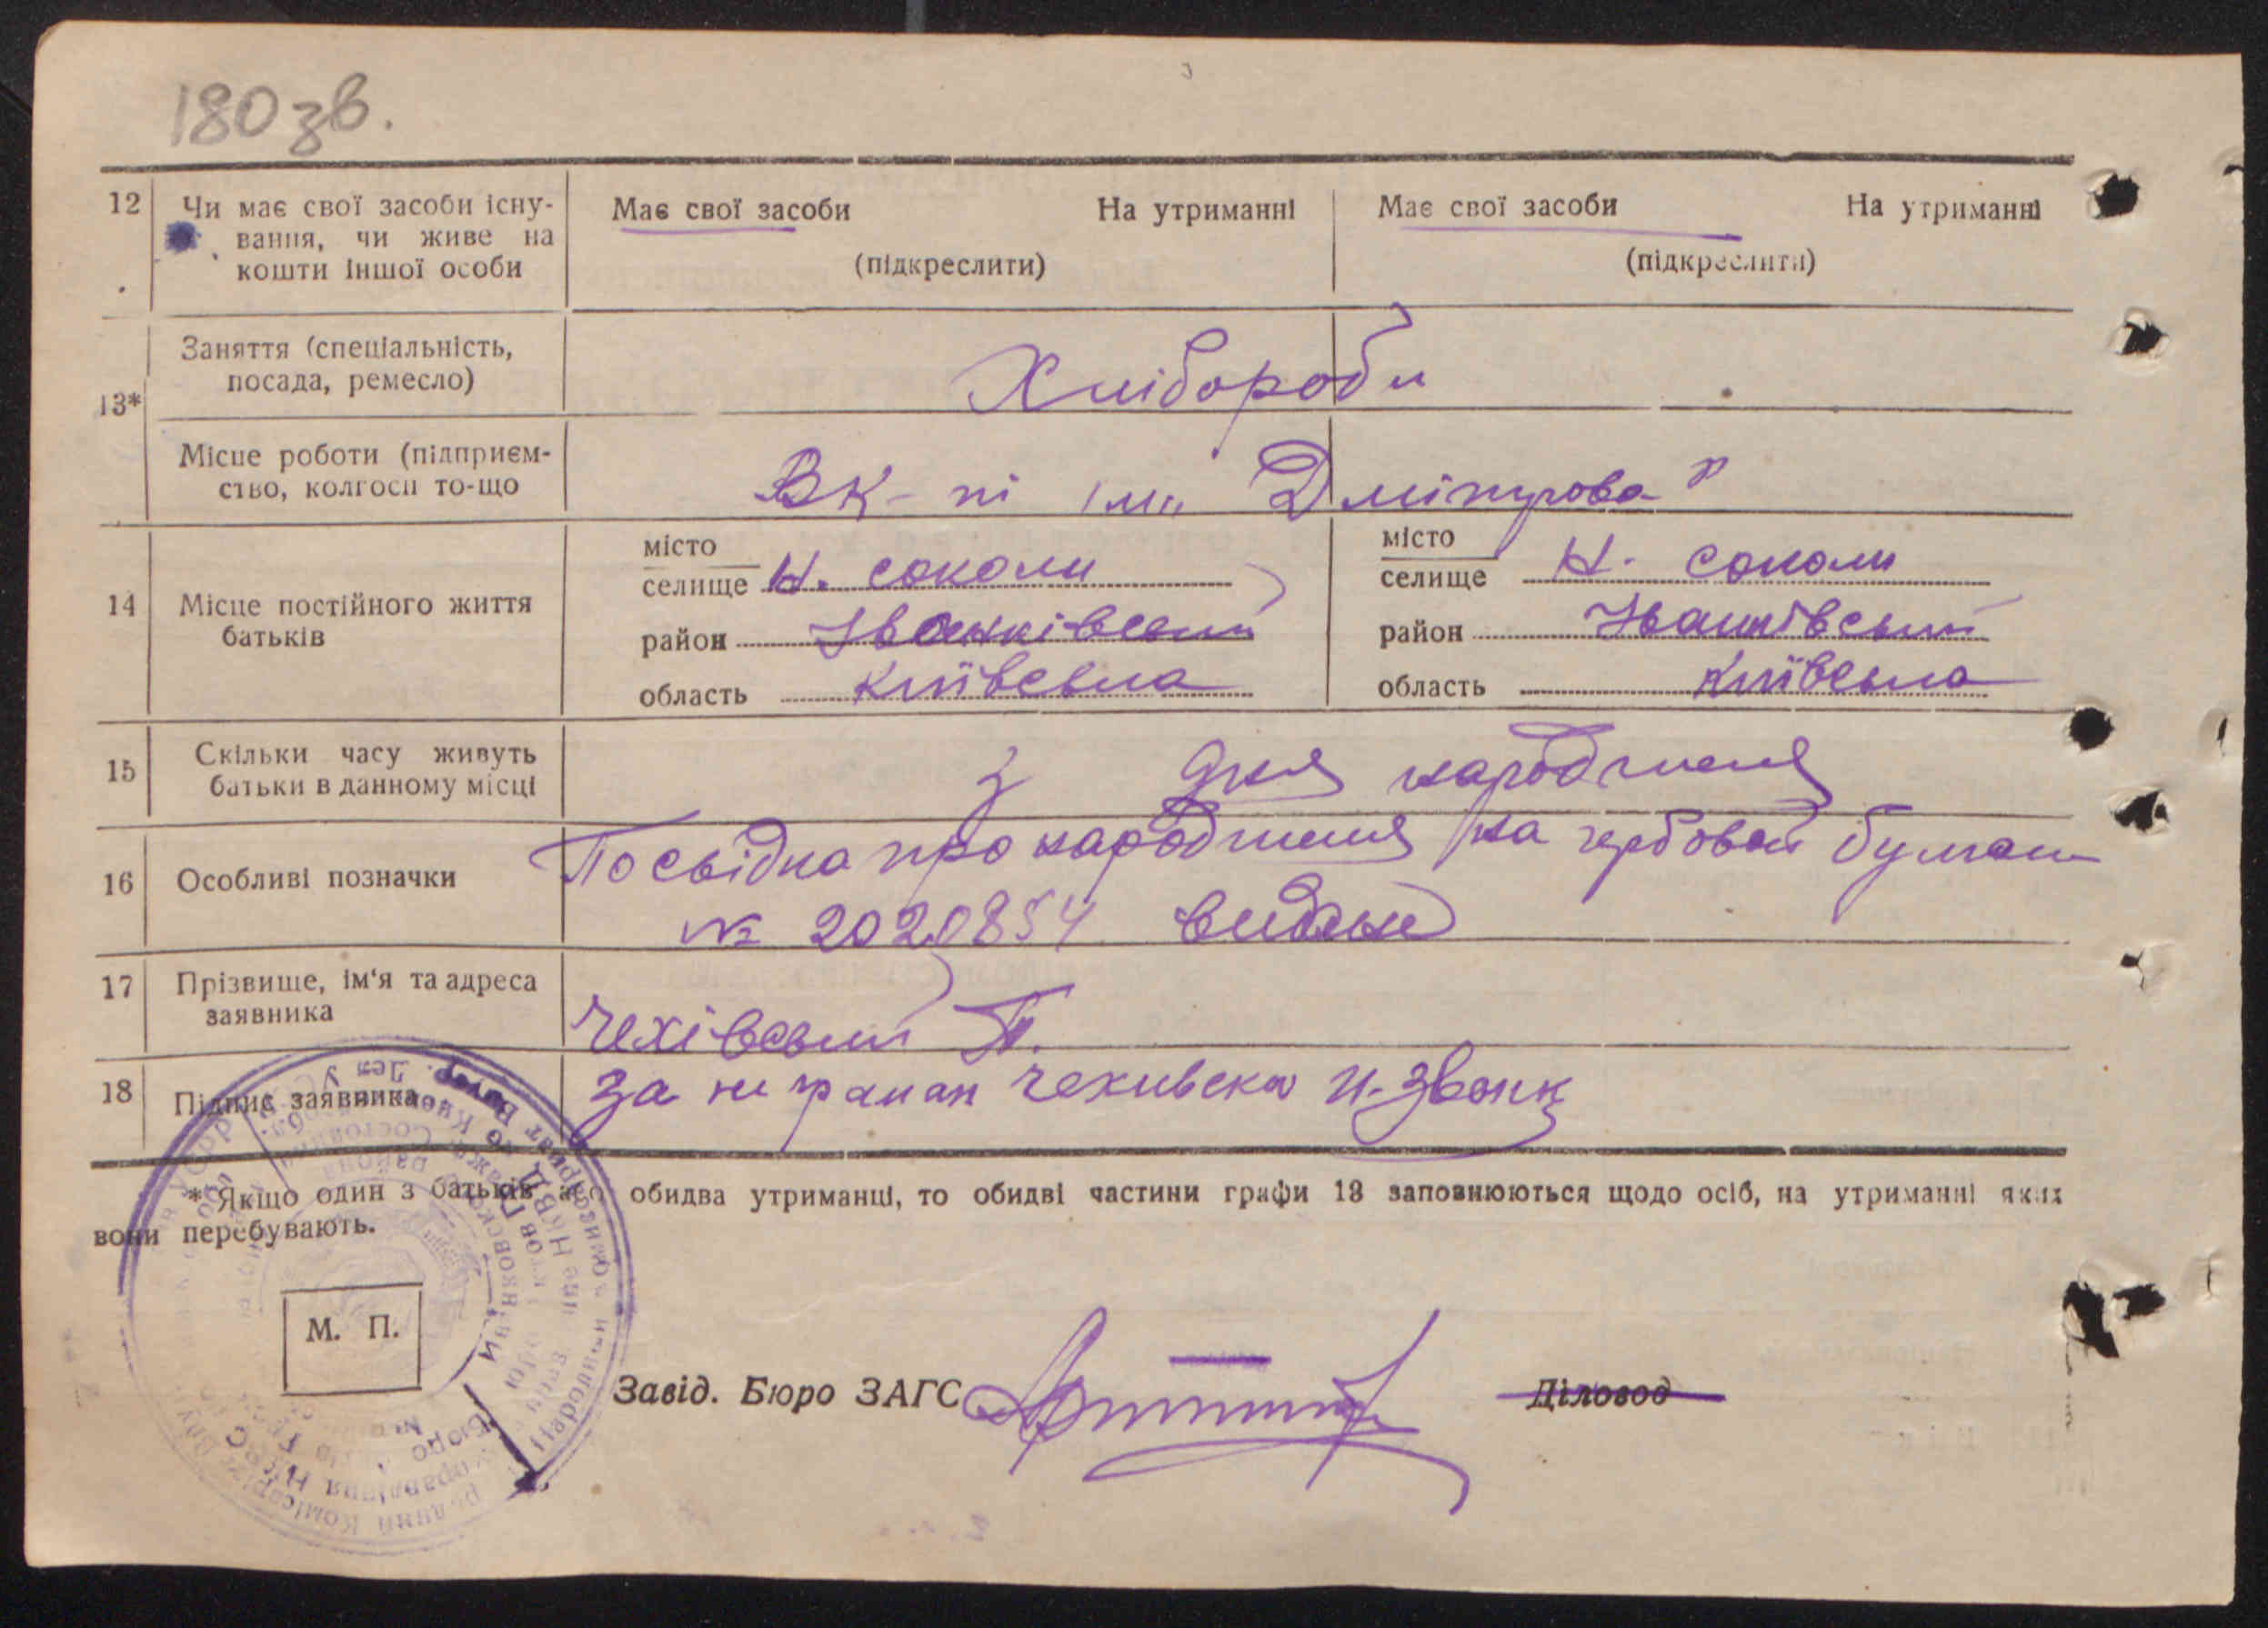 180 зв.
12 Чи має свої засоби існу-
вання, чи живе на
кошти іншої особи
Має свої засоби На утриманні
(підкреслити)
Має свої засоби На утриманні
(підкреслити)
13*
Заняття (спеціальність,
посада, ремесло)
Хлібороби
Місце роботи (підприєм-
ство, колгосп то-що
В К-пі
14 Місце постійного життя
батьків
місто
селище Н. соколи
район Іванківський
область Київська
місто
селище Н. соколи
район Іванківський
область Київська
15 Скільки часу живуть
батьки в данному місці
з дня народженя
16 Особливі позначки
Посвідка про народженя на гербовой
№ 2020854
17 Прізвище, ім‘я та адреса
заявника
Чехівський П.
18 Підпис заявника
за
* Якщо один з батьків або обидва утриманці, то обидві частини графи 13 заповнюються щодо осіб, на утриманні яких
вони перебувають.
М. П.
Завід. Бюро ЗАГС
Діловод